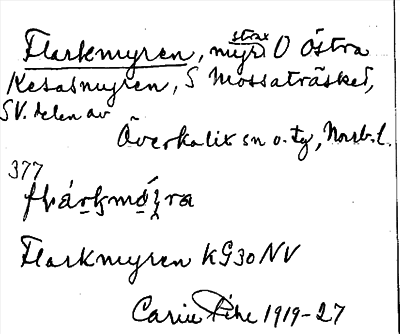 Flarkmyren, myr strax O Östra
Kesasmyren, S Mossaträsket,
SV. delen av
Överkalix sn o. tg, Norrb. l.
377
Flarkmyren KG30NV
Carin Pihl 1919-27